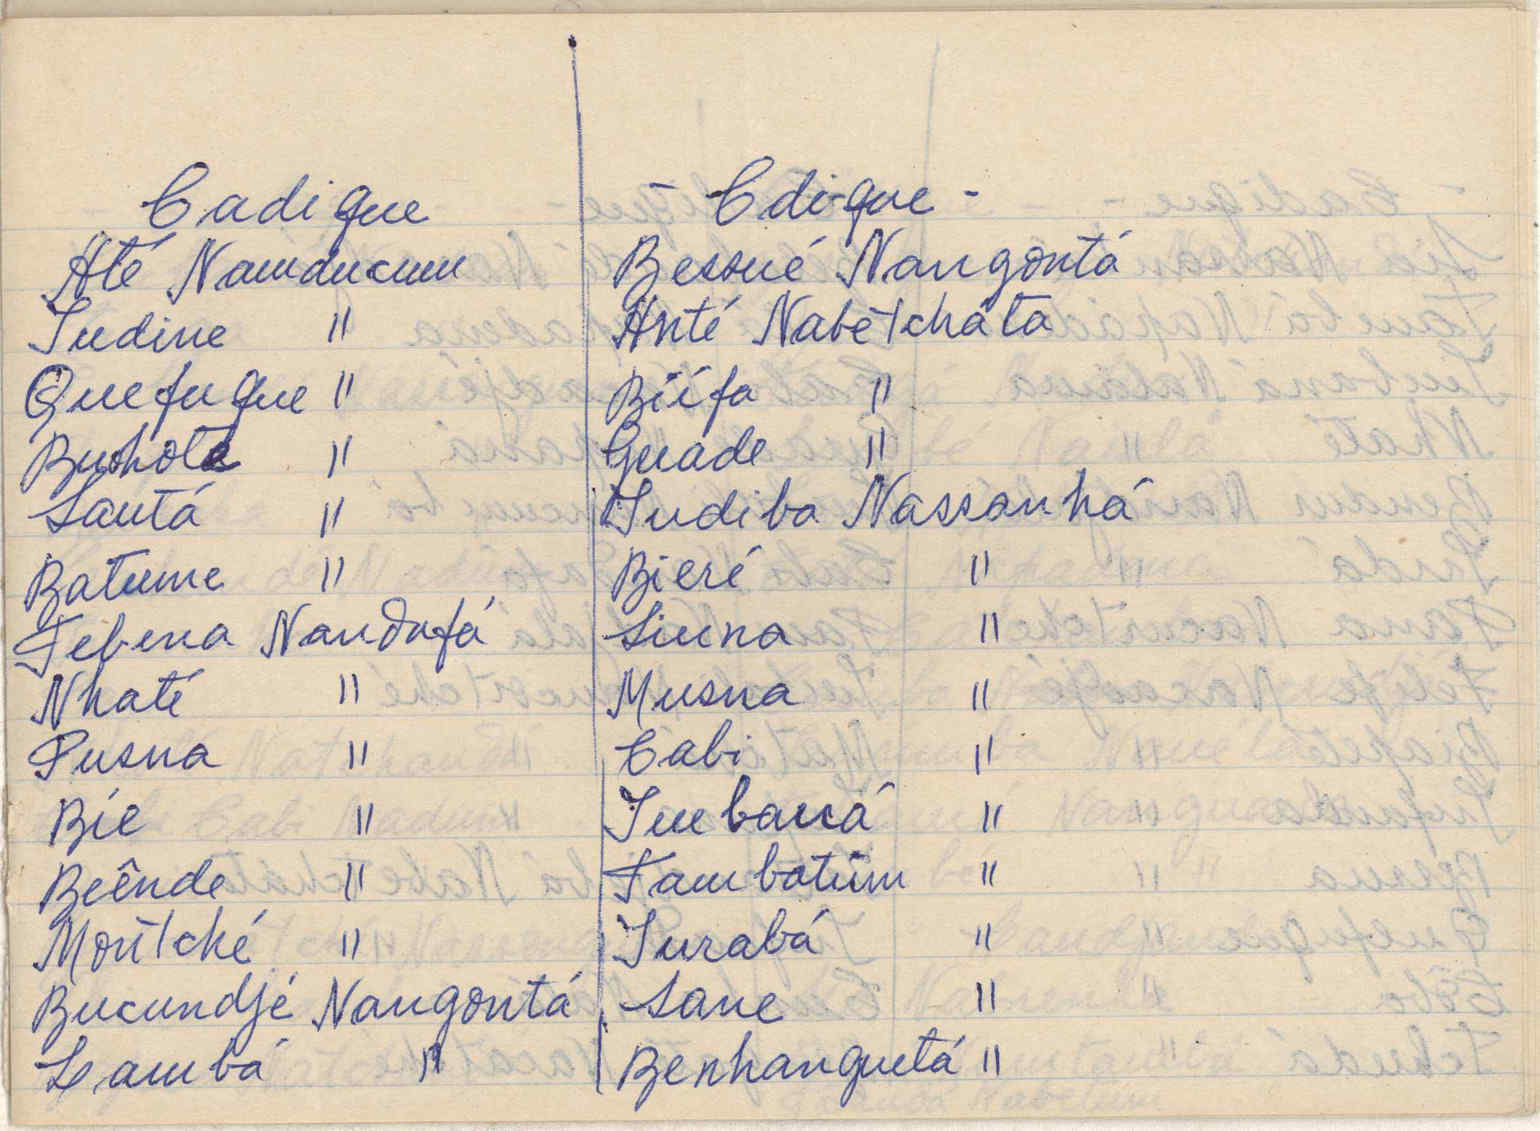 Cadique
Até Namducum
Iudine "
Quefugue "
Buohote "
Santá "
Batume "
Tebena Nandafá
Nhaté "
Pusna "
Bíe "
Beênde "
Montché "
Bucundjé Nangontá
Lambá "
- Cdi-que -
Bessué Nangontá
Anté Nabêtcháta
Biífa "
Guade "
Iudiba Nassanhá
Bieré "
Siuna "
Musna "
Cabi "
Imbaná "
Tambatúm "
Iurabá "
Sane "
Benhanguetá "